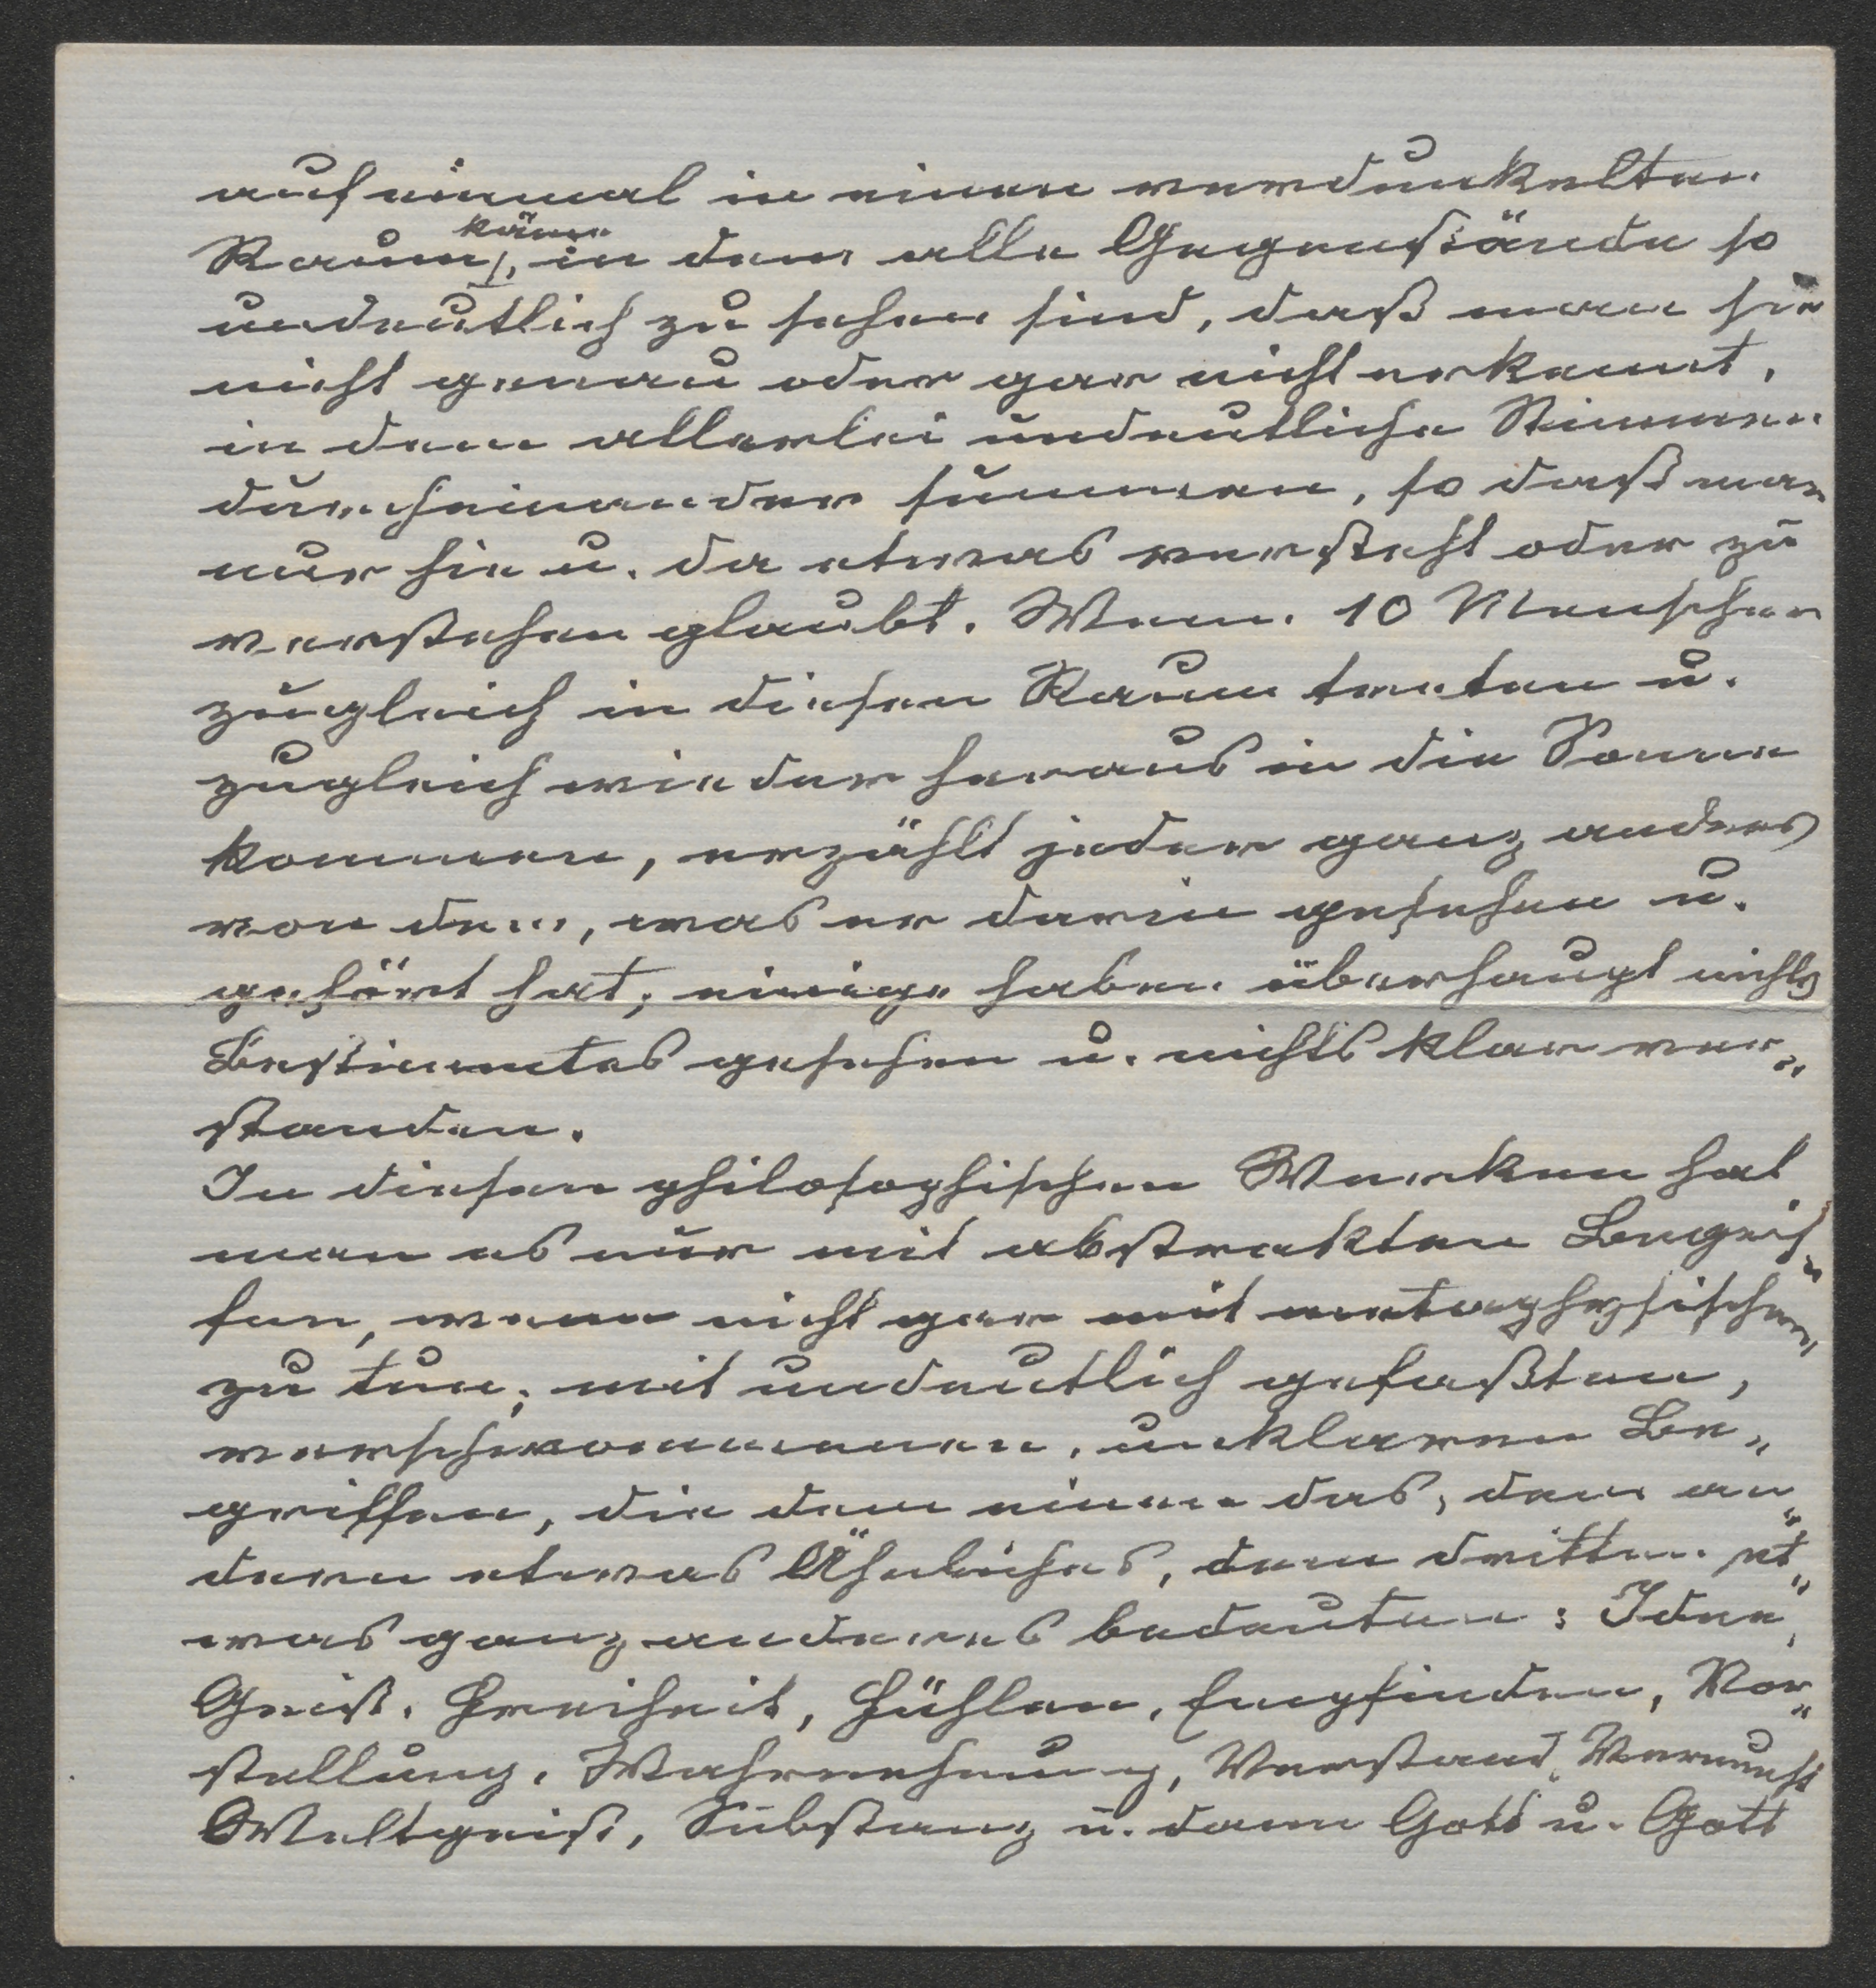 auf einmal in einen verdunkelten
käme
Raum, in dem alle Gegenstände so
undeutlich zu sehen sind, daß man sie
nicht genau oder gar nicht erkennt,
in dem allerlei undeutliche Stimmen
durcheinander summen, so daß man
nur hie u. da etwas versteht oder zu
verstehen glaubt. Wenn 10 Menschen
zugleich in diesen Raum treten u.
zugleich wieder heraus in die Sonne
kommen, erzählt jeder ganz anders
von dem, was er darin gesehen u.
gehört hat; einige haben überhaupt nichts
Bestimmtes gesehen u. nichts klar ver„
standen.
In diesen philosophischen Werken hat
man es nur mit abstrakten Begrif„
fen, wenn nicht gar mit metaphysischen,
zu tun; mit undeutlich gefaßten,
verschwommenen, unklaren Be„
griffen, die dem einen das, dem an„
deren etwas Ähnliches, dem dritten et„
was ganz anderes bedeuten: Idee,
Geist, Freiheit, Fühlen, Empfinden, Vor„
stellung, Wahrnehmung, Verstand, Vernunft
Weltgeist, Substanz u. dann Gott u. Gott